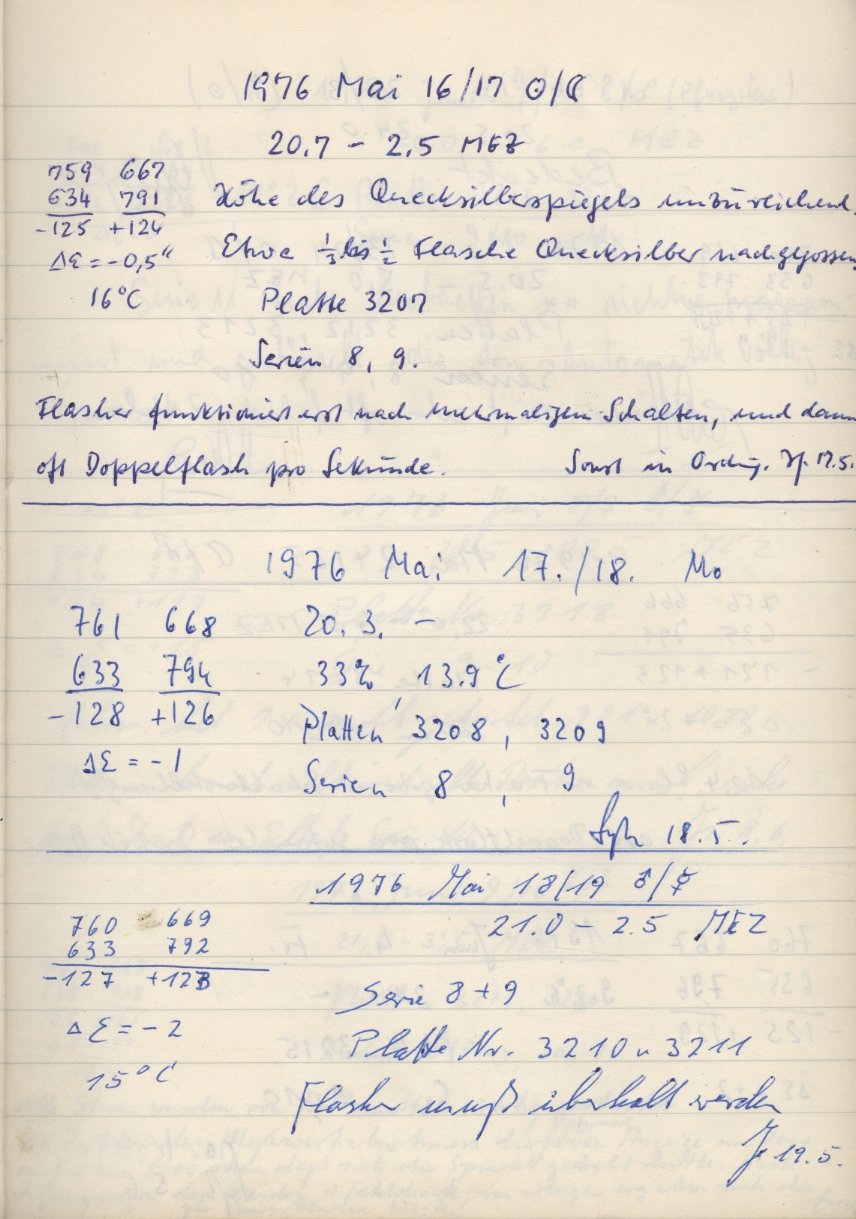 1976 Mai 16/17 ☉/☾
20.7 – 2.5 MEZ
759 667
634 791 Höhe des Quecksilberspiegels unzureichend.
-125 +124
Etwa 1/3 bis 1/2 Flasche Quecksilber nachgegossen
Δε = -0,5"
16°C Platte 3207
Serien 8, 9.
Flasher funktioniert erst nach mehrmaligem Schalten, und dann
oft Doppelflash pro Sekunde. Sonst in Ordng. 17.5.
1976 Mai 17./18. Mo
761 668 20.3. –
633 794 33%, 13.9°C
-128 +126 Platten 3208, 3209
Δε = -1
Serien 8, 9
18.5.
1976 Mai 18/19 ♂/☿
760 669 21.0 – 2.5 MEZ
633 792
-127 +123
Serie 8+9
Δε = -2
Platte Nr. 3210 u 3211
15°C
Flasher muß überholt werden
19.5.